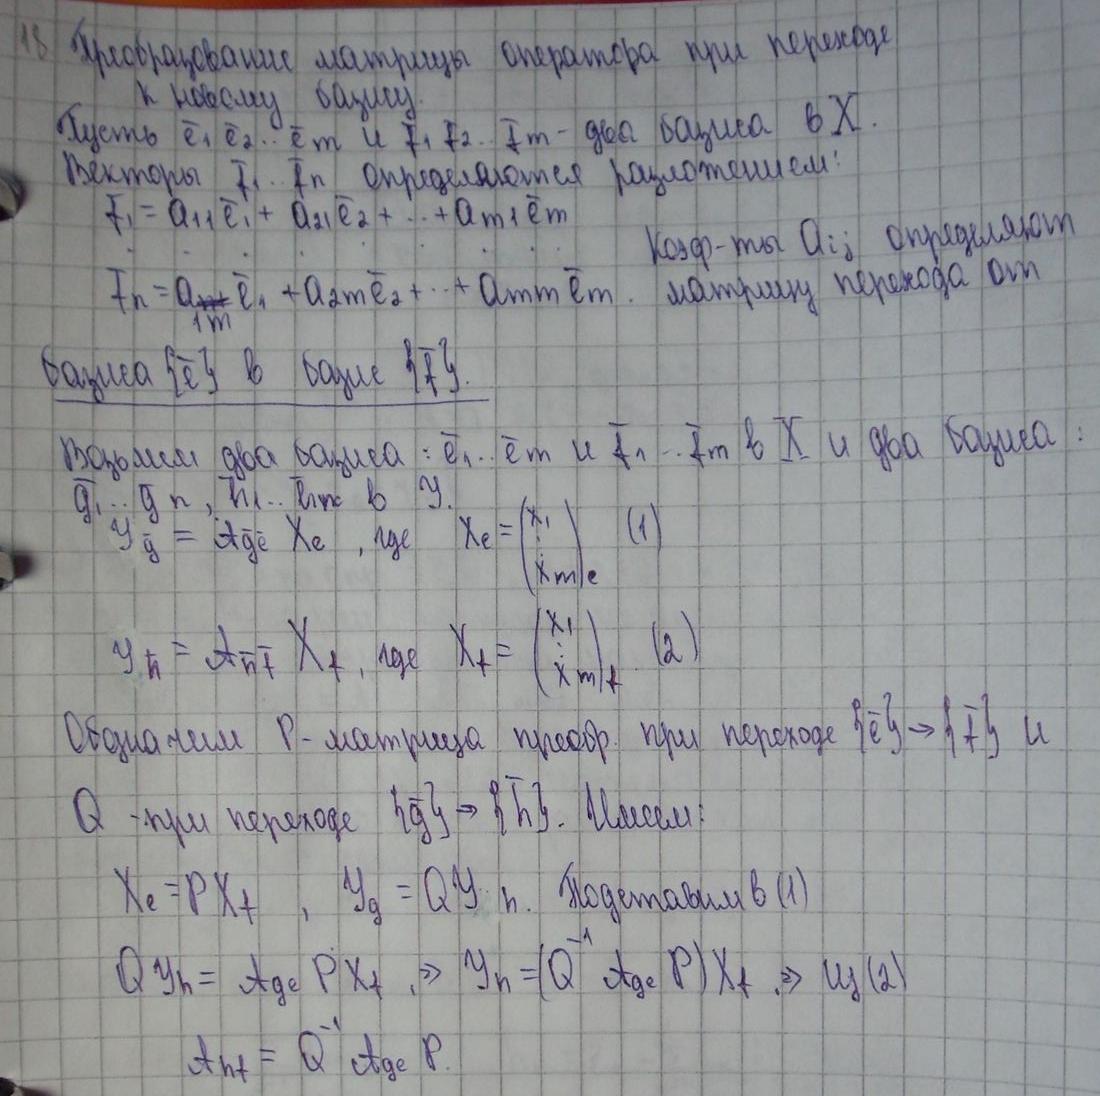 18 Преобразование матрицы оператора при переходе
к новому базису.
Пусть ē₁ ē₂.. ēm и f̄₁ f̄₂.. f̄m - два базиса в X.
Векторы f̄₁.. f̄n определяются разложением:
f̄₁ = a₁₁ē₁ + a₂₁ē₂ + ... + am₁ēm
. . . . . . . .
Коэф-ты aij определяют
f̄n = a₁m ē₁ + a₂mē₂ + ... + amm ēm. матрицу перехода от
базиса {ē} в базис {f̄}.
Возьмем два базиса: ē₁.. ēm и f̄₁... f̄m в X и два базиса:
ḡ₁... ḡn, h̄₁... h̄n в Y.
Yḡ = Aḡē Xe, где Xe = (x₁ ⋮ xm)e (1)
Yh̄ = Ah̄f̄ Xf, где Xf = (x₁ ⋮ xm)f (2)
Обозначим P-матрица преобр. при переходе {ē} → {f̄} и
Q - при переходе {ḡ} → {h̄}. Имеем:
Xe = PXf, Yg = QYh. Подставим в (1)
QYh = Age PXf, ⇒ Yh = (Q⁻¹ Age P)Xf, ⇒ из (2)
Ahf = Q⁻¹ Age P.